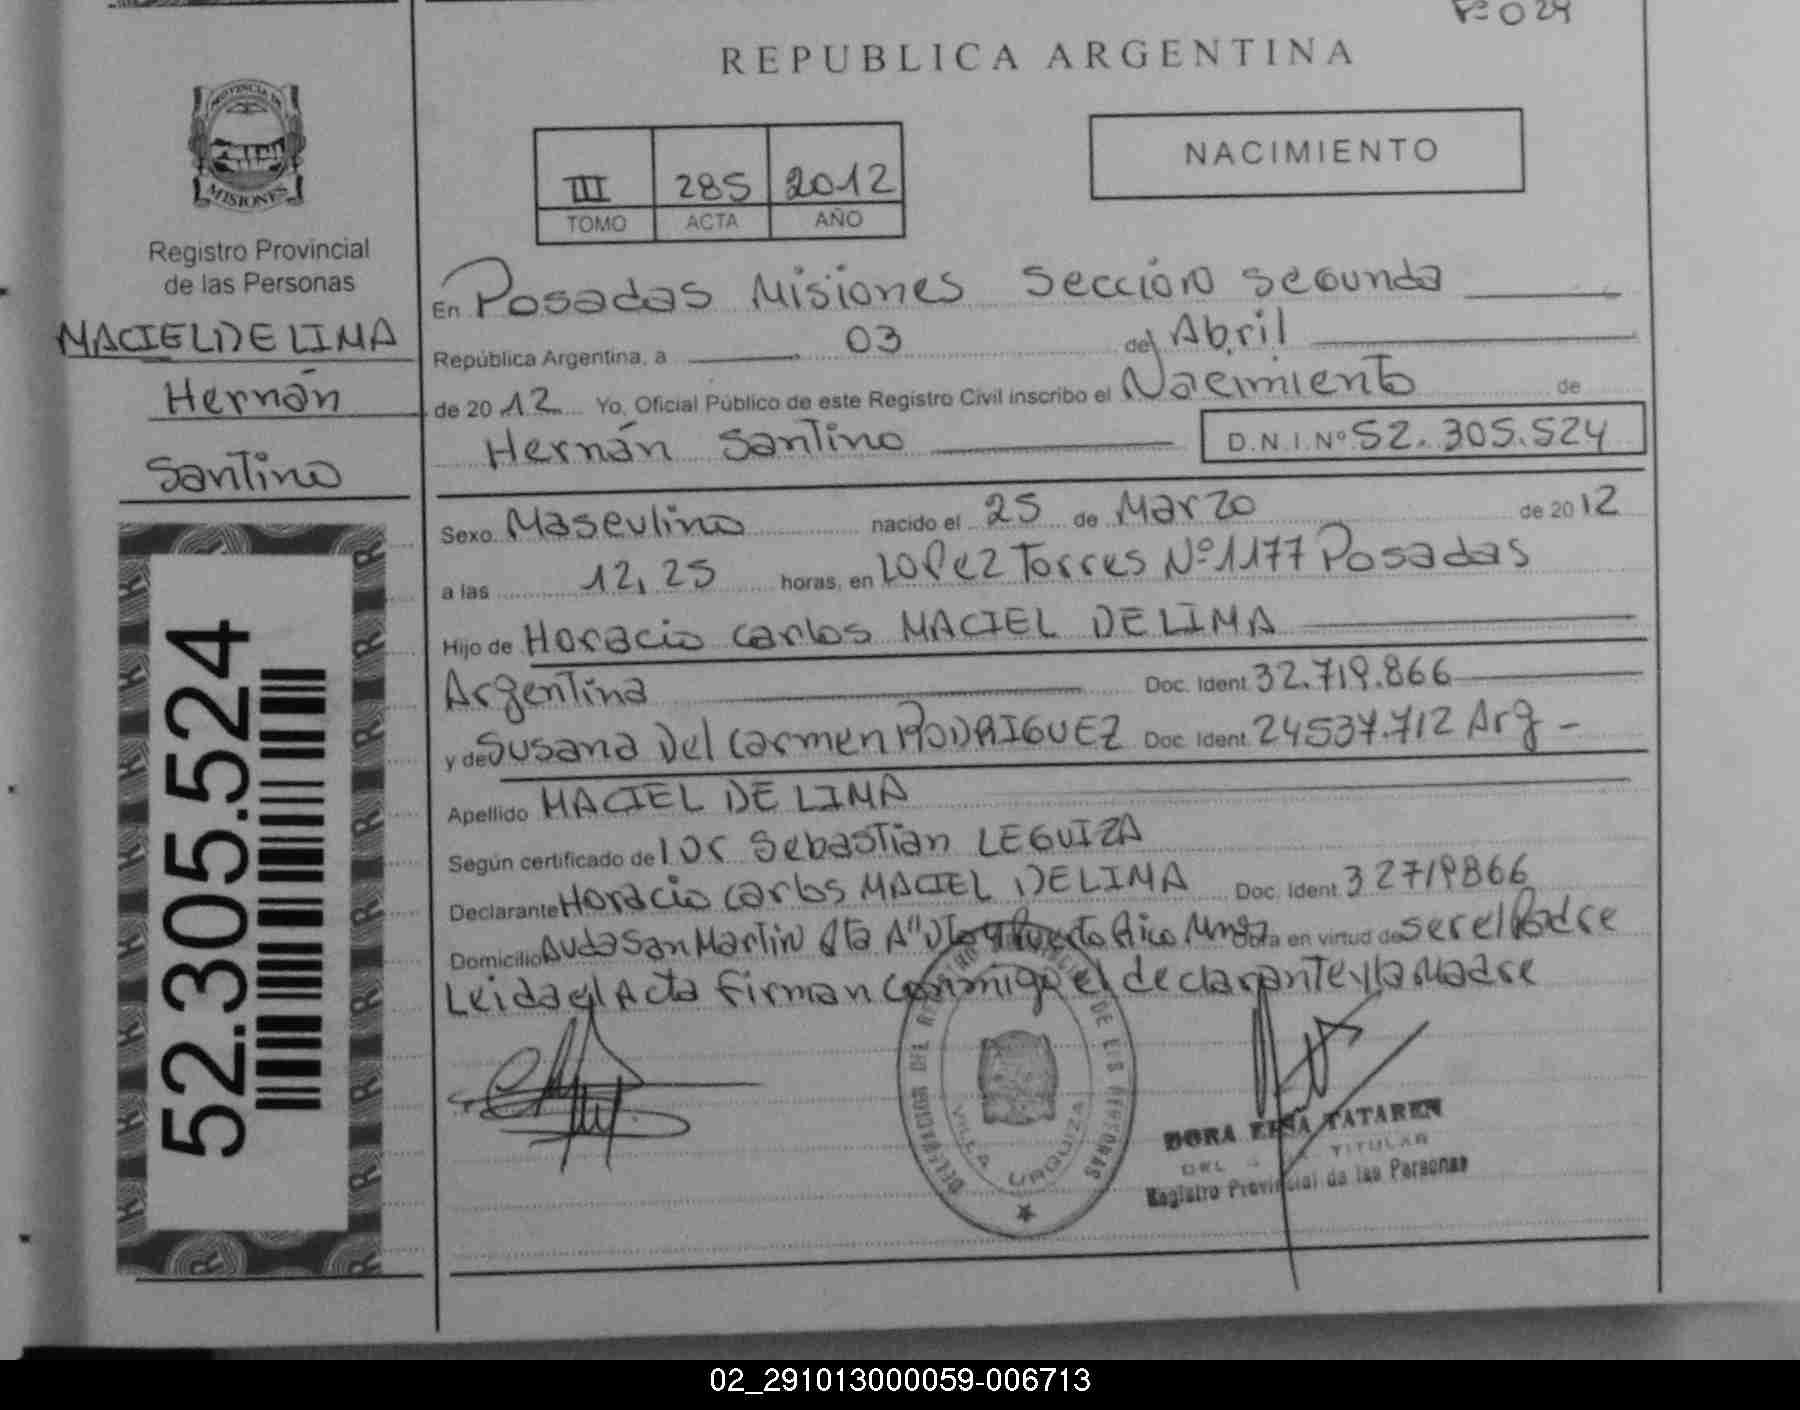 Fº 024
REPUBLICA ARGENTINA
PROVINCIA DE
MISIONES
Registro Provincial
de las Personas
MACIEL DE LIMA
Hernán
Santino
52.305.524
III 285 2012
TOMO ACTA AÑO
NACIMIENTO
En Posadas Misiones Sección Segunda
República Argentina, a 03 de Abril
de 2012 Yo, Oficial Público de este Registro Civil inscribo el Nacimiento de
Hernán Santino D.N.I.Nº 52.305.524
Sexo Masculino nacido el 25 de Marzo de 2012
a las 12,25 horas, en Lopez Torres Nº 1177 Posadas
Hijo de Horacio Carlos MACIEL DE LIMA
Argentina Doc. Ident. 32.719.866
y de Susana Del Carmen RODRIGUEZ Doc. Ident. 24537.712 Arg -
Apellido MACIEL DE LIMA
Según certificado de Sebastián LEGUIZA
Declarante Horacio Carlos MACIEL DE LIMA Doc. Ident. 32719866
Domicilio Avda San Martin Puerto Rico Obra en virtud de ser el Padre
Leida el Acta Firman conmigo el declarante y la Madre
DELEGACION DEL REGISTRO PROVINCIAL DE LAS PERSONAS
VILLA URQUIZA
DORA TATAREN
TITULAR
Registro Provincial de las Personas
02_291013000059-006713